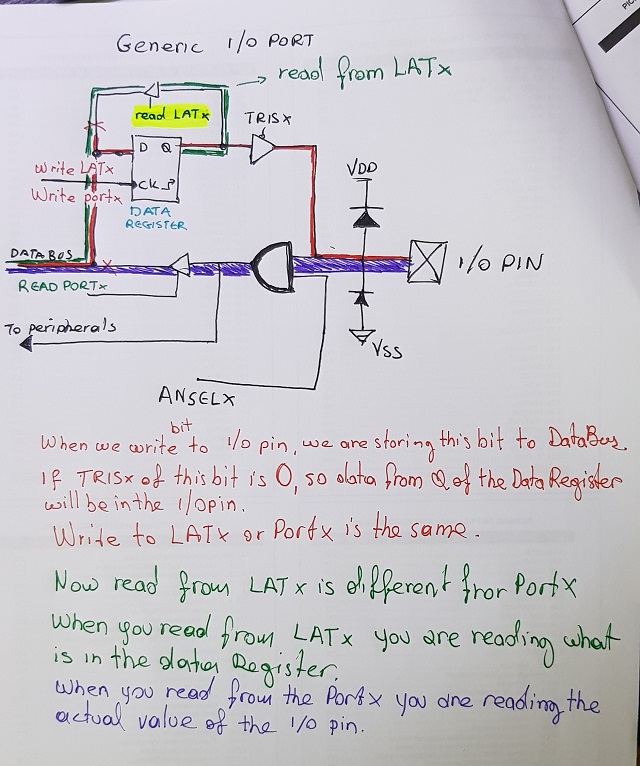 Generic I/O PORT
read from LATx
read LATx
TRISx
D Q
Write LATx
Write portx
CK
DATA
REGISTER
VDD
DATA BUS
I/O PIN
READ PORTx
To peripherals
VSS
ANSELx
When we write bit to I/O pin, we are storing this bit to DataBus
If TRISx of this bit is 0, so data from Q of the Data Register
will be in the I/O pin.
Write to LATx or Portx is the same.
Now read from LATx is different fror PortX
When you read from LATx you are reading what
is in the data Register.
When you read from the Portx you are reading the
actual value of the I/O pin.